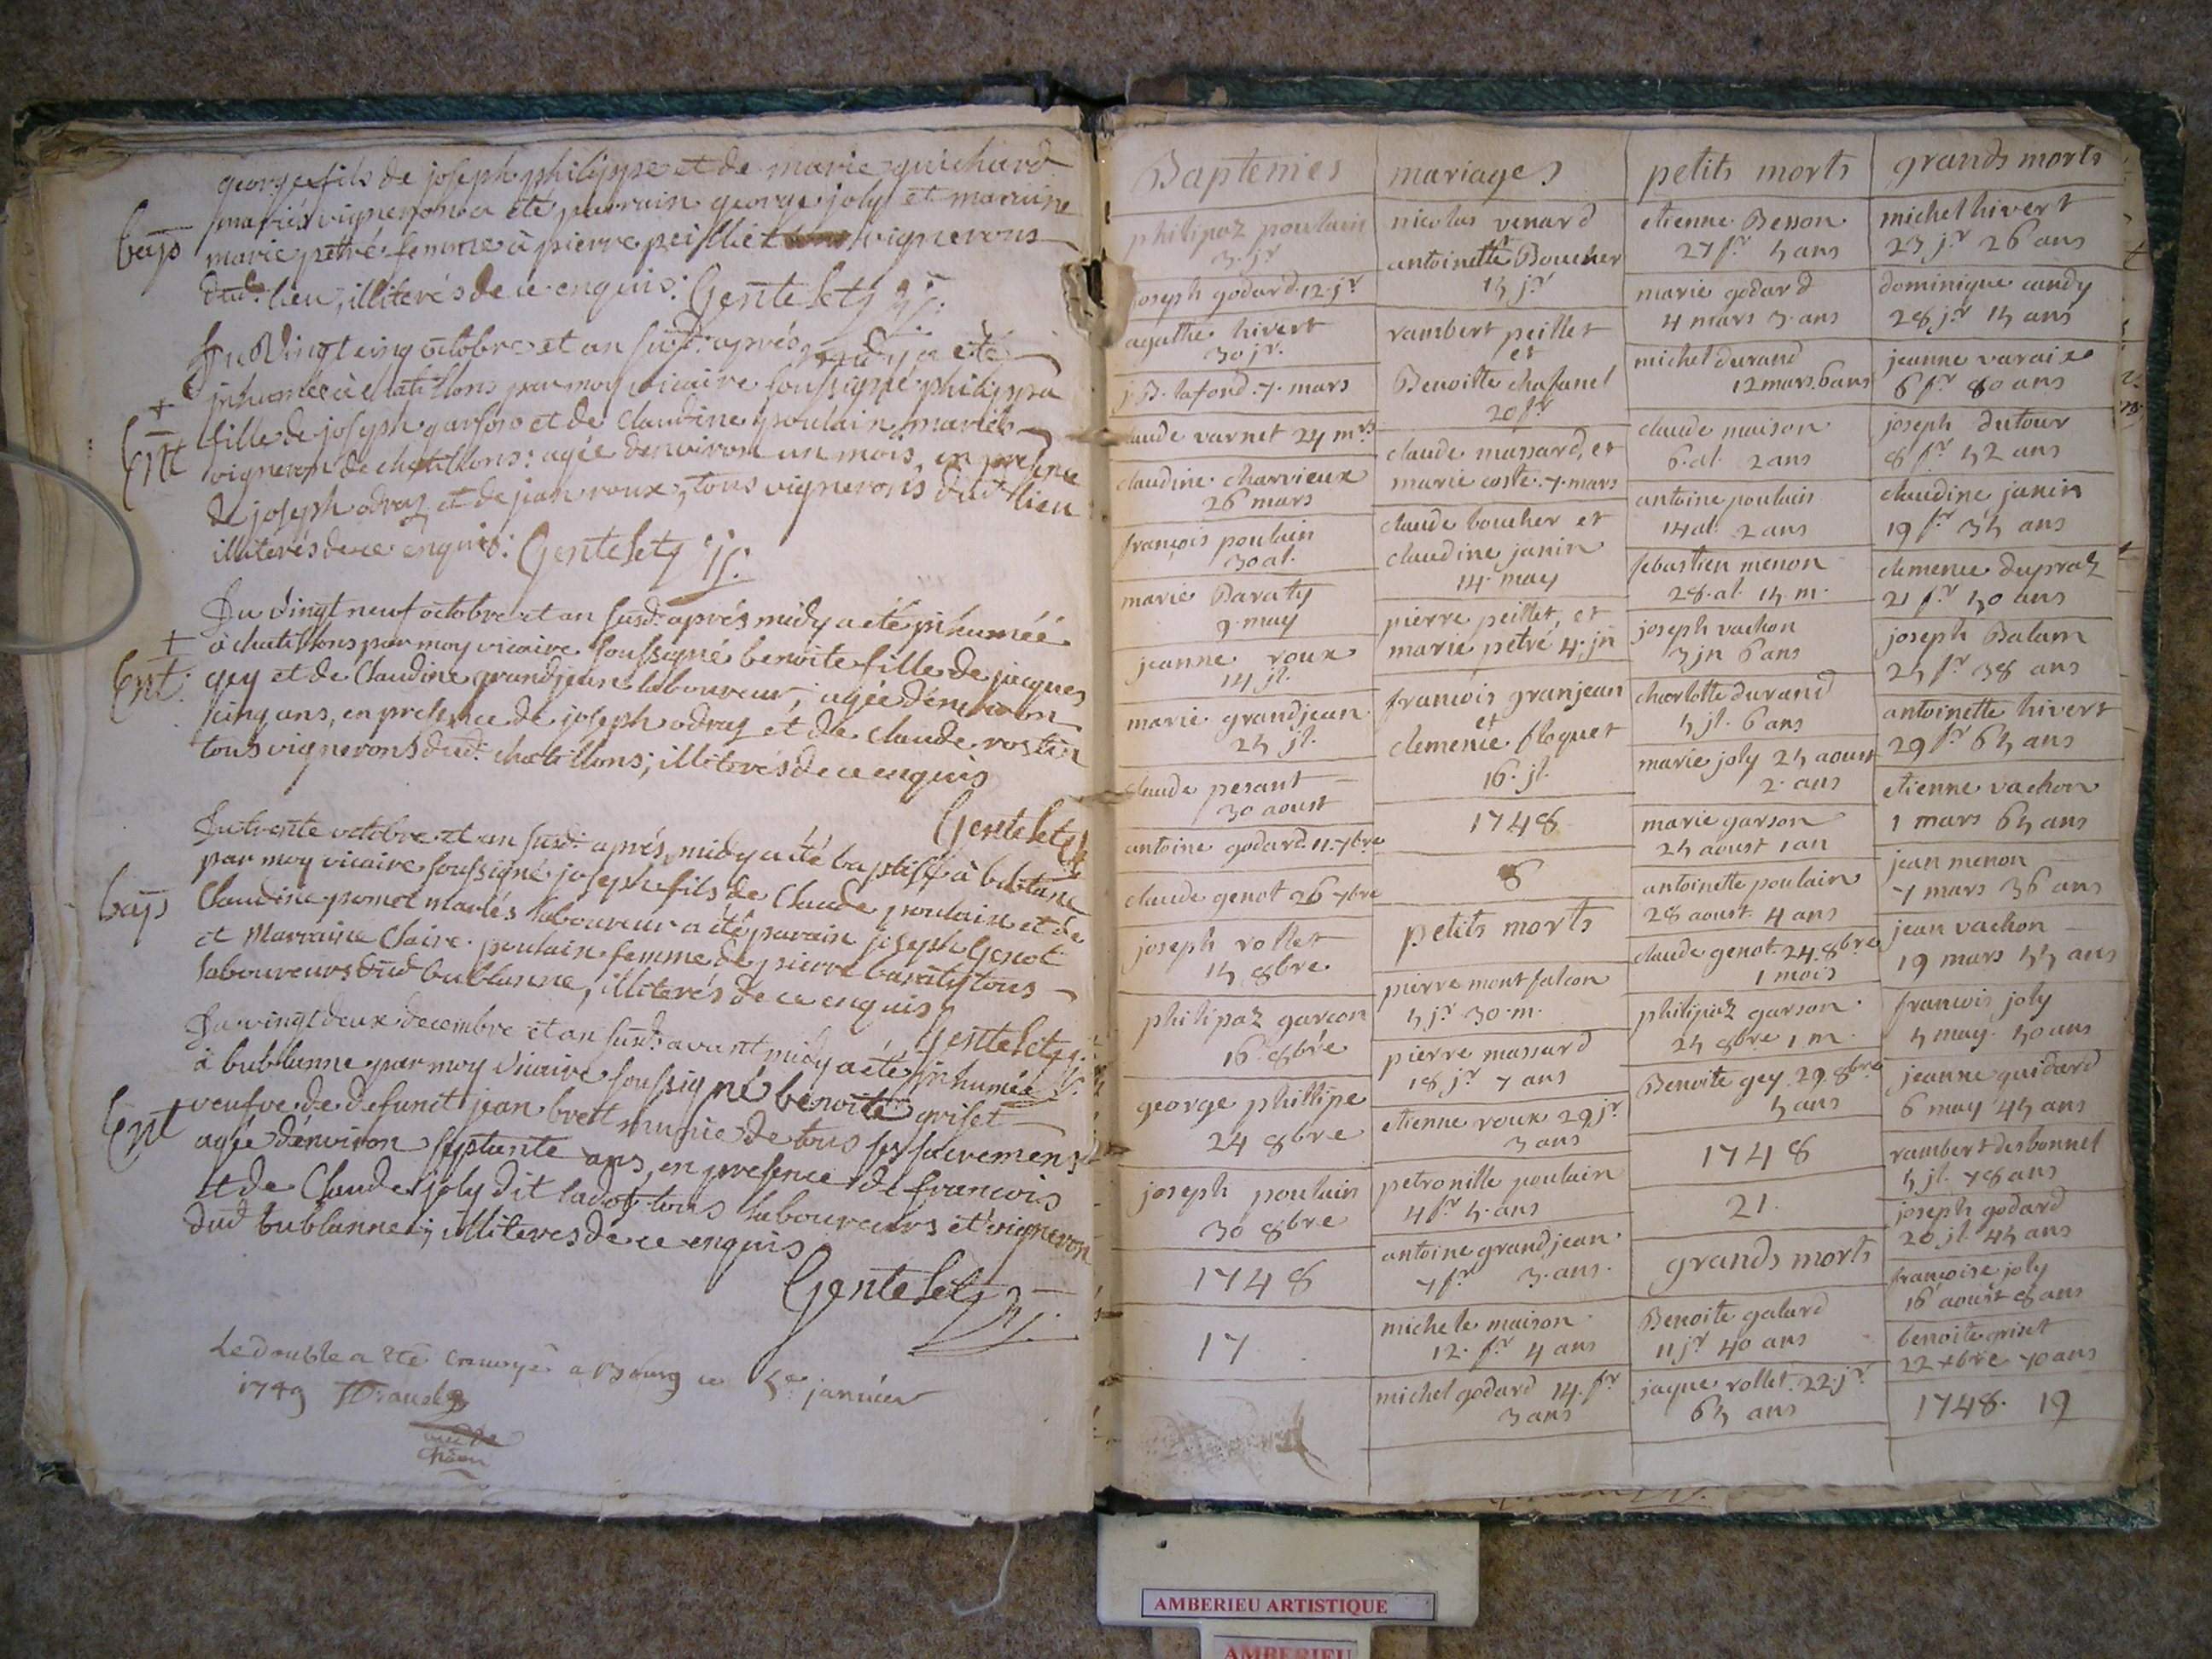 george fils de joseph philippe et de marie guichard
mariés vigneron a été parrain george joly et marraine
bap
marie petré femme à pierre peillet vignerons
dud. lieu, illiterés de ce enquis: Gentelety
Du Vingt cinq octobre et an susd. aprés midy a été
inhumée à chatillons par moy vicaire soussigné philippa
+
Ent
fille de joseph garson et de Claudine poulain mariés
vigneron de chatillons: agée denviron un mois, en presence
de joseph odraz et de jean roux, tous vignerons dud. lieu
illiterés de ce enquis: Gentelety
Du Vingt neuf octobre et an susd. aprés midy a été inhumée
+
à chatillons par moy vicaire soussigné benoite fille de jacques
Ent.
gey et de Claudine grandjean laboureur, agée denviron
cinq ans, en presence de joseph odraz et de claude
tous vignerons dud. chatillons; illiterés de ce enquis
Gentelety
Du trente octobre et an susd. aprés midy a été baptisé à bublanne
par moy vicaire soussigné joseph fils de Claude poulain et de
bap
Claudine mariés laboureur a été parain joseph Genot
et Marraine Claire poulain femme de pierre baratty tous
laboureurs dud bublanne, illiterés de ce enquis
Gentelety
Du vingt deux decembre et an susd. avant midy a été inhumée
à bublanne par moy vicaire soussigné benoite griset
Ent
veufve de defunct jean brett munie de tous ses sacremens
agée denviron septante ans, en presence de francois
et de Claude joly dit ladot tous laboureurs et vigneron
dud bublanne; illiteres de ce enquis
Gentelety
Le double a été envoyé a Bourg ce 5e janvier
1749
Baptemes
philipaz poulain
3. jr
joseph godard. 12. jr
agathe hivert
30 jr.
j. B. lafond. 7. mars
claude varnet 24 mrs
claudine charvieux
26 mars
françois poulain
30 al.
marie Baraty
9. may
jeanne roux
14 jl.
marie grandjean
25 jl.
claude pesant
30 aoust
antoine godard. 11. 7bre
claude genot 26 7bre
joseph rollet
15 8bre
philipaz garcon
16 8bre
george phillipe
24 8bre
joseph poulain
30 8bre
1748
17
mariages
nicolas venard
et
antoinette Boucher
15 jr
rambert peillet
et
Benoitte chasanel
20 fr
claude massard, et
marie coste. 7. mars
claude boucher et
claudine janin
14. may
pierre peillet, et
marie petré 4. jn
francois granjean
et
clemence floquet
16. jl.
1748
8
petits morts
pierre montfalcon
5 jr 30. m.
pierre massard
18 jr 7 ans
etienne roux 29 jr.
3 ans
petronille poulain
4 fr 5. ans
antoine grandjean.
7 fr 3. ans.
michele maison
12. fr 4 ans
michel godard 14. fr
3 ans
petits morts
etienne Besson
27 fr 5 ans
marie godard
4 mars 3. ans
michel durand
12 mars. 6 ans
claude maison
6. al. 2 ans
antoine poulain
14 al. 2 ans
sebastien menon
28. al. 15 m.
joseph vachon
3 jn 6 ans
charlotte durand
5 jl. 6 ans
marie joly 25 aoust
2. ans
marie garson
25 aoust 1 an
antoinette poulain
28 aoust. 4 ans
claude genot. 24. 8bre
1 mois
philipaz garson.
25 8bre 1 m.
Benoite gey. 29. 8bre
5 ans
1748
21.
grands morts
Benoite galard
11 jr 40 ans
jaque rollet. 22. jr
65 ans
grands morts
michel hivert
23 jr 26 ans
dominique candy
28 jr 15 ans
jeanne varaix
6 fr 80 ans
joseph dutour
8 fr 52 ans
claudine janin
19 fr 35 ans
clemence dupraz
21 fr 50 ans
joseph Balam
25 fr 38 ans
antoinette hivert
29 fr 65 ans
etienne vachon
1 mars 65 ans
jean menon
7 mars 36 ans
jean vachon
19 mars 55 ans
francois joly
5 may. 50 ans
jeanne guichard
6 may 45 ans
rambert desbonnel
5 jl. 78 ans
joseph godard
20 jl. 45 ans
françoise joly
16 aoust 8 ans
benoite griset
22 xbre 70 ans
1748. 19
AMBERIEU ARTISTIQUE
AMBERIEU